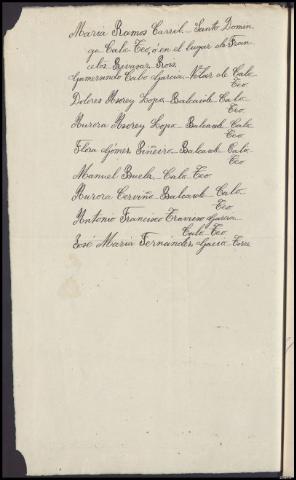 Maria Ramos Carril - Santo Domin
go Calo Teo, ó en el lugar de Fran
celos Ribadavia Rosa
Gumersindo Calo Garcia - Vilar de Calo
Teo
Dolores Noorey Lopez - Balcaide Calo
Teo
Aurora Noorey Lopez - Balcaide Calo
Teo
Flora Gómez Piñeiro - Balcaide Calo
Teo
Manuel Buela - Calo Teo
Aurora Cerviño - Balcaide Calo
Teo
Antonio Francisco Travieso Garcia
Calo Teo
José Maria Fernández Garcia